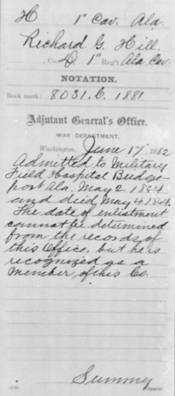 H 1" Cav. Ala.
Richard G. Hill
Co. D 1" Reg't Ala Cav.
NOTATION.
Book mark: 8031. C. 1881
Adjutant General's Office,
WAR DEPARTMENT,
Washington, June 17" 1882
Admitted to Military
Field Hospital Bridge
port Ala. May 2 1864
and died May 4 1864.
The date of enlistment
cannot be determined
from the records of
this Office, but he is
recognized as a
member, of this Co.
Summy